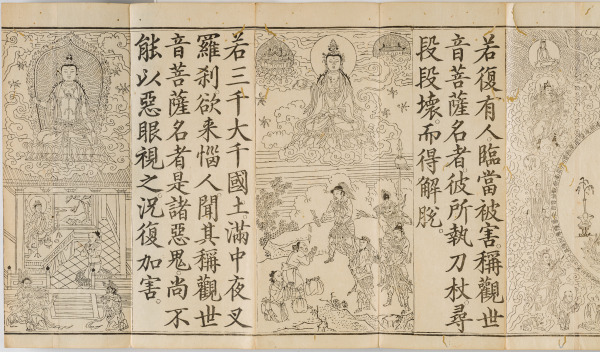 若復有人臨當被害。稱觀世
音菩薩名者彼所執刀杖。尋
段段壞。而得解脫。
若三千大千國土。滿中夜叉
羅刹欲来惱人聞其稱觀世
音菩薩名者是諸惡鬼。尚不
能以惡眼視之。況復加害。